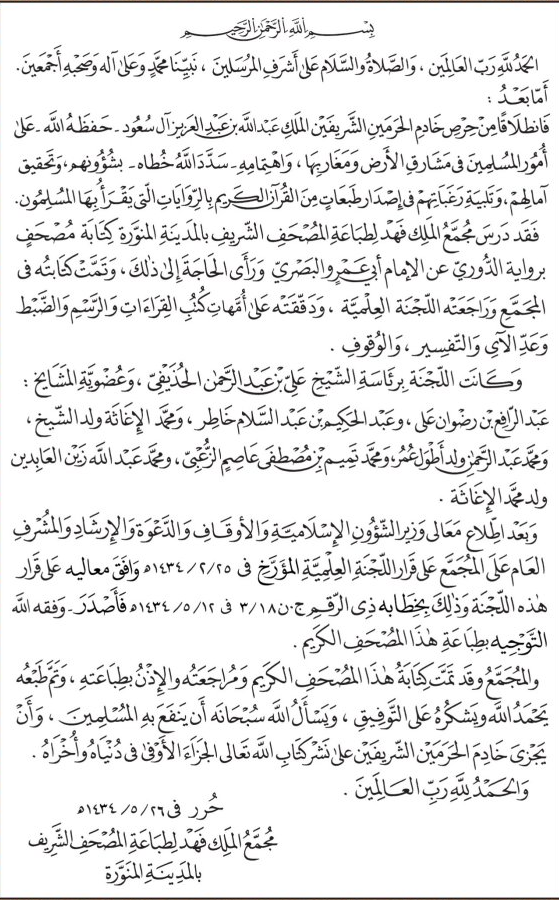 بِسْمِ اللَّهِ الرَّحْمَٰنِ الرَّحِيمِ
الحَمْدُ للَّهِ رَبِّ العَالَمِينَ ، وَالصَّلَاةُ وَالسَّلَامُ عَلىٰ أَشْرَفِ المُرْسَلِينَ ، نَبِيِّنَا مُحَمَّدٍ وَعَلىٰ آلِهِ وَصَحْبِهِ أَجْمَعِينَ .
أَمَّا بَعْدُ :
فَانْطِلَاقًا مِنْ حِرْصِ خَادِمِ الحَرَمَينِ الشَّرِيفَيْنِ المَلِكِ عَبْدِ اللَّه بْنِ عَبْدِ العَزِيزِ آل سُعُود ـ حَفِظَهُ اللَّه ـ عَلىٰ
أُمُورِ المُسْلِمِينَ فِي مَشَارِقِ الأَرْضِ وَمَغَارِبِهَا ، وَاهْتِمَامِهِ ـ سَدَّدَ اللَّهُ خُطَاه ـ بِشُؤُونِهِم ، وَتَحْقِيقِ
آمَالِهِمْ ، وَتَلْبِيَةِ رَغَبَاتِهِمْ فِي إِصْدَارِ طَبَعَاتٍ مِنَ القُرْآنِ الكَرِيمِ بِالرِّوَايَاتِ الَّتِي يَقْرَأُ بِهَا المُسْلِمُون .
فَقَد دَرَسَ مُجَمَّعُ المَلِك فَهْد لِطِبَاعَةِ المُصْحَفِ الشَّرِيفِ بِالمَدِينَةِ المُنَوَّرَةِ كِتَابَةَ مُصْحَفٍ
بِرِوايَةِ الدُّورِيِّ عَنِ الإمَامِ أَبِي عَمْرٍو البَصْرِيِّ وَرَأَى الحَاجَةَ إِلىٰ ذٰلِكَ ، وَتَمَّتْ كِتَابَتُه فِي
المُجَمَّعِ وَرَاجَعَتْه اللَّجْنَة العِلْمِيَّة ، وَدَقَّقَتْه عَلىٰ أُمَّهَاتِ كُتُبِ القِرَاءَاتِ وَالرَّسْمِ وَالضَّبْط
وَعَدِّ الآيِ وَالتَّفْسِيرِ ، وَالوُقُوفِ .
وَكَانَت اللَّجْنَة بِرِئَاسَةِ الشَّيْخِ عَلِيِّ بْنِ عَبْدِ الرَّحْمٰنِ الحُذَيْفِيِّ ، وَعُضْوِيَّةِ المَشَايِخِ :
عَبْدِ الرَّافِعِ بْنِ رِضْوَان عَلِي ، وَعَبْدِ الحَكِيمِ بْنِ عَبْدِ السَّلَامِ خَاطِر ، وَمُحَمَّد الإِغَاثَة وَلد الشَّيْخ ،
وَمُحَمَّد عَبْد الرَّحْمٰنِ وَلد أَطْوَل عُمُر ، وَمُحَمَّد تَمِيم بْنِ مُصْطَفَى عَاصِم الزُّعْبِيّ ، وَمُحَمَّد عَبْد اللَّه زَيْن العَابِدِين
وَلد مُحَمَّد الإِغَاثَة .
وَبَعْدَ اطِّلَاعِ مَعَالِي وَزِيرِ الشُّؤُونِ الإِسْلَامِيَّةِ وَالأَوْقَافِ وَالدَّعْوَةِ وَالإِرْشَادِ وَالمُشْرِفِ
العَامِ عَلَى المُجَمَّعِ عَلَى قَرَارِ اللَّجْنَةِ العِلْمِيَّةِ المُؤَرَّخِ فِي ١٤٣٤/٢/٢٥ه وَافَقَ مَعَالِيه عَلَى قَرَارِ
هٰذِهِ اللَّجْنَة وَذٰلِكَ بِخِطَابِه ذِي الرَّقْمِ ج.ن/٣/١٨ فِي ١٤٣٤/٥/١٢ه فَأَصْدَرَ ـ وَفَّقَه اللَّه
التَّوْجِيه بِطِبَاعَةِ هٰذَا المُصْحَفِ الكَرِيم .
والمُجَمَّعُ وَقَد تَمَّت كِتَابَةُ هٰذَا المُصْحَفِ الكَرِيم وَمُرَاجَعَتُه وَالإِذْنُ بِطِبَاعَتِه ، وَتَمَّ طَبْعُه
يَحْمَدُ اللَّه وَيَشْكُرُهُ عَلَى التَّوْفِيقِ ، وَيَسْأَلُ اللَّه سُبْحَانَه أَن يَنْفَعَ بِهِ المُسْلِمِينَ ، وَأَنْ
يَجْزِيَ خَادِمَ الحَرَمَيْنِ الشَّرِيفَيْنِ عَلىٰ نَشْرِ كِتَابِ اللَّه تَعَالَى الجَزَاءَ الأَوْفَىٰ فِي دُنْيَاهُ وَأُخْرَاهُ .
وَالحَمْدُ لِلَّهِ رَبِّ العَالَمِينَ .
حُرر فى ١٤٣٤/٥/٢٦ه
مُجَمَّعُ المَلِك فَهْد لِطِبَاعَةِ المُصْحَفِ الشَّرِيف
بِالمَدِينَةِ المُنَوَّرَة